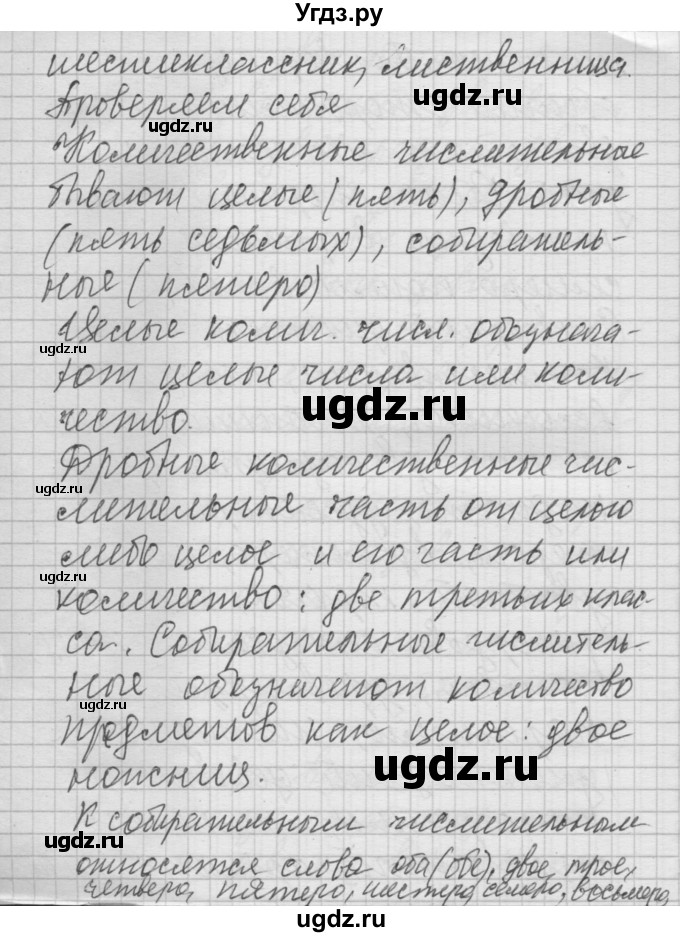 Угдз.ру
шестиклассник, лиственница.
ugdz.ru
Проверяем себя
ugdz.ru
Количественные числительные
бывают целые (пять), дробные
(пять седьмых), собиратель-
ugdz.ru
ные (пятеро)
Целые колич. числ. обознача-
ugdz.ru
ют целые числа или коли-
ugdz.ru
чество.
Дробные количественные чис-
ugdz.ru
лительные часть от целого
либо целое и его часть или
ugdz.ru
количество: две третьих клас-
са. Собирательные числитель-
ugdz.ru
ные обозначают количество
предметов как целое: двое
ugdz.ru
ножниц.
К собирательным числительным
ugdz.ru
относятся слова оба (обе), двое, трое,
четверо, пятеро, шестеро, семеро, восьмеро,
ugdz.ru